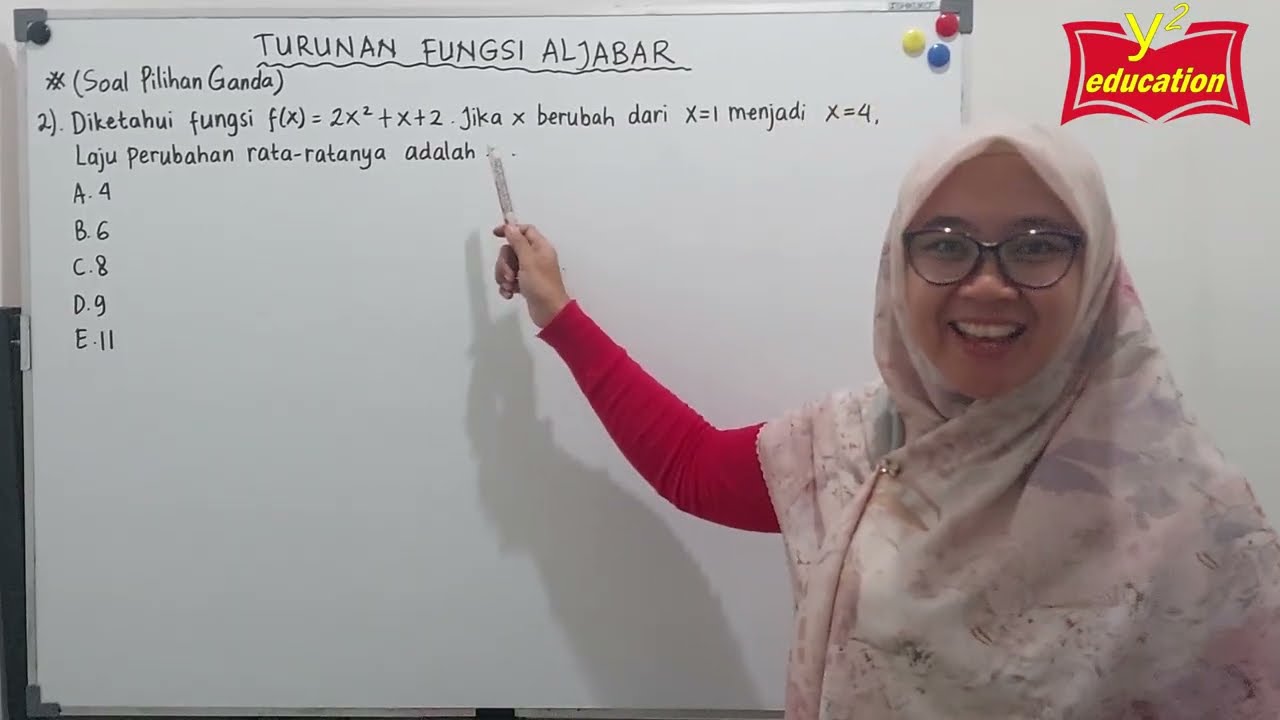 TURUNAN FUNGSI ALJABAR
* (Soal Pilihan Ganda)
2). Diketahui fungsi f(x) = 2x² + x + 2. Jika x berubah dari x=1 menjadi x=4,
Laju perubahan rata-ratanya adalah
A. 4
B. 6
C. 8
D. 9
E. 11
y²
education